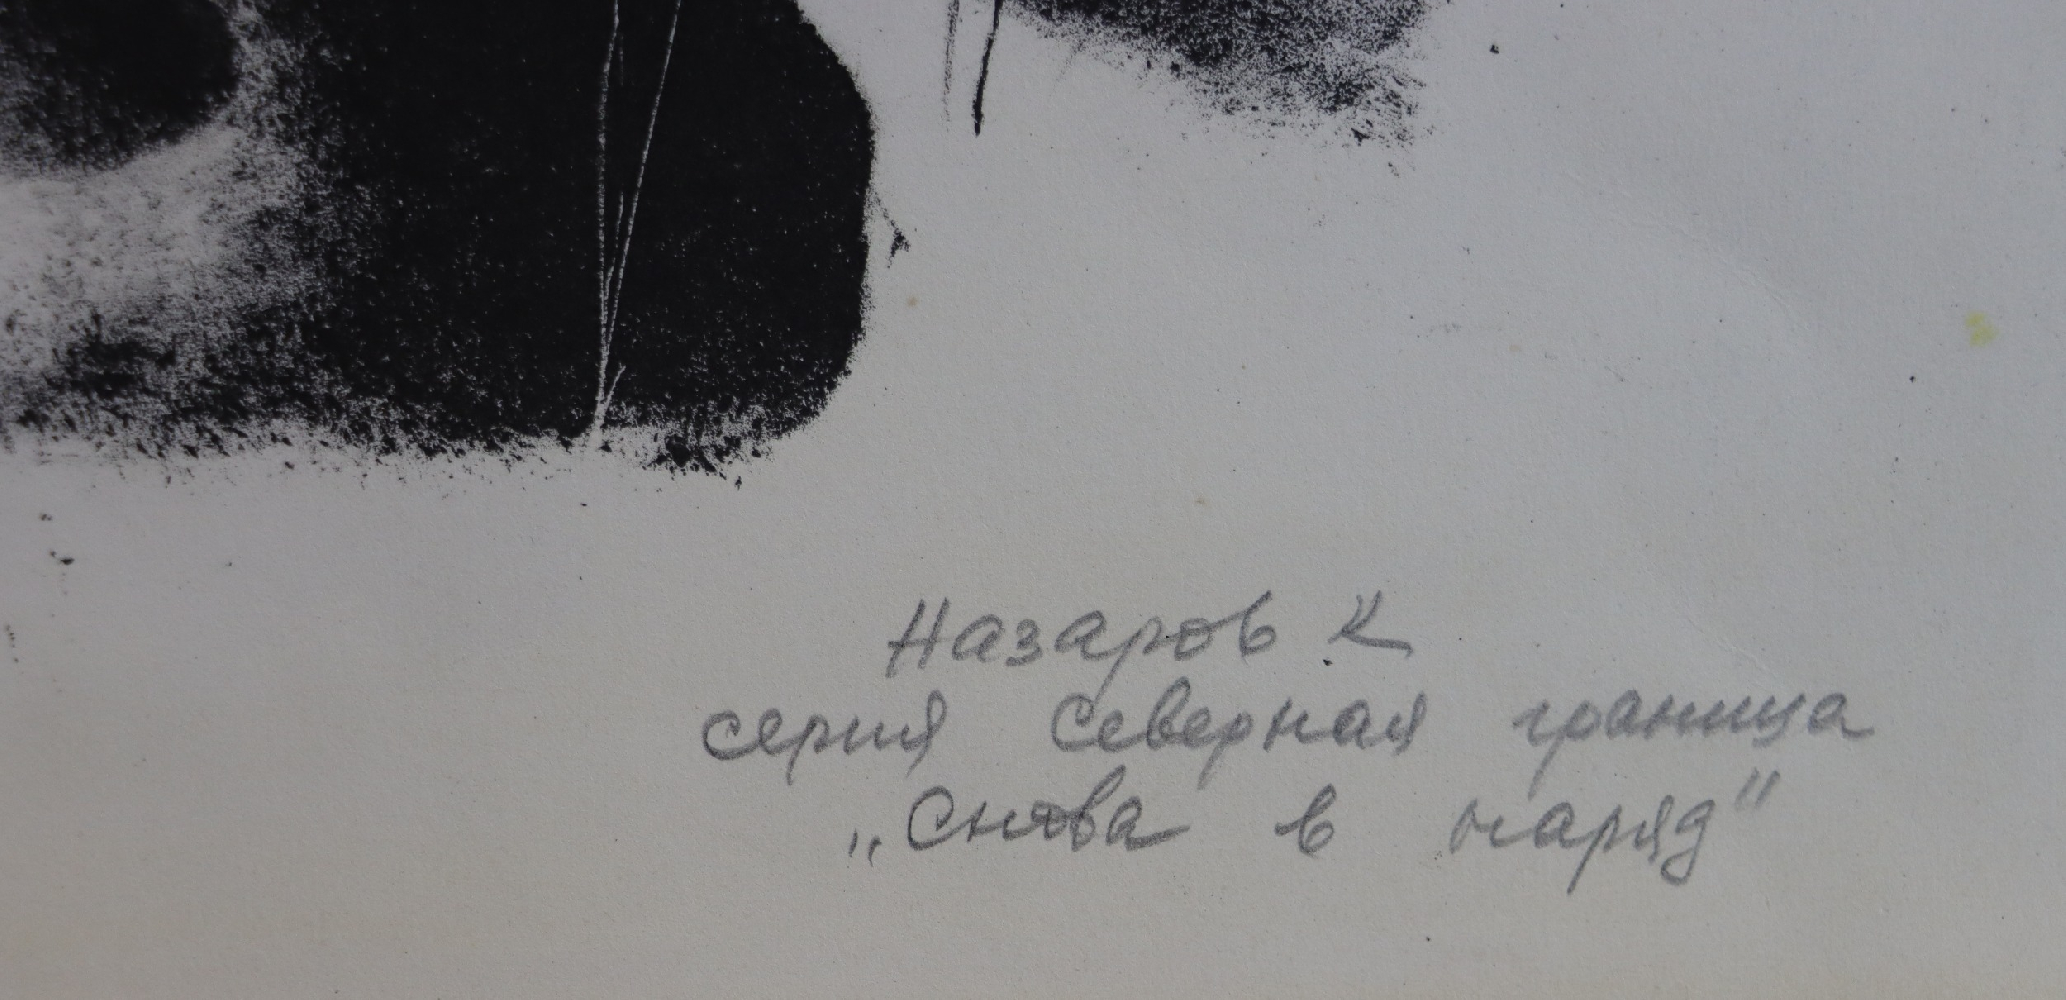 Назаров К
серия Северная граница
„Снова в наряд"